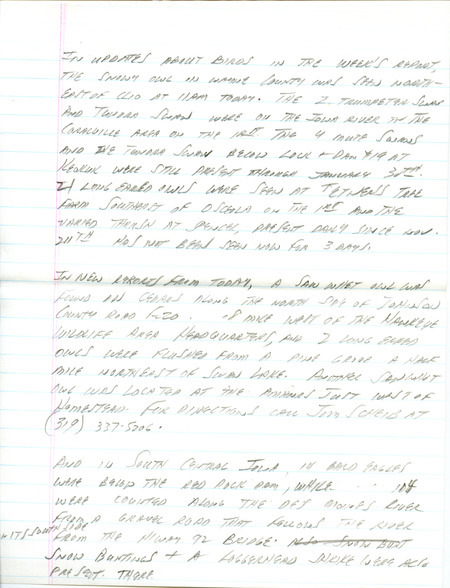 IN UPDATES ABOUT BIRDS IN THE WEEK'S REPORT,
THE SNOWY OWL IN WAYNE COUNTY WAS SEEN NORTH-
EAST OF CLIO AT 11AM TODAY. THE 2 TRUMPETER SWAN
AND TUNDRA SWAN WERE ON THE IOWA RIVER IN THE
CORALVILLE AREA ON THE 1ST. THE 4 MUTE SWANS
AND THE TUNDRA SWAN BELOW LOCK + DAM #19 AT
KEOKUK WERE STILL PRESENT THROUGH JANUARY
LONG EARED OWLS WERE SEEN AT TREE
FARM SOUTHEAST OF OSCEOLA ON THE 1ST AND THE
VARIED THRUSH AT SPENCER, PRESENT DAILY SINCE NOV.
HAS NOT BEEN SEEN NOW FOR 3 DAYS.
IN NEW REPORTS FROM TODAY, A SAW WHET OWL WAS
FOUND IN CEDARS ALONG THE NORTH SIDE OF JOHNSON
COUNTY ROAD .8 MILE WEST OF THE HAWKEYE
WILDLIFE AREA HEADQUARTERS, AND 2 LONG EARED
OWLS WERE FLUSHED FROM A PINE GROVE A HALF
MILE NORTHEAST OF SWAN LAKE. ANOTHER SAW WHET
OWL WAS LOCATED AT THE AMANAS JUST WEST OF
HOMESTEAD. FOR DIRECTIONS CALL JIM SCHEIB AT
(319) 337-5206.
AND IN SOUTH CENTRAL IOWA, BALD EAGLES
WERE BELOW THE RED ROCK DAM, WHILE 104
WERE COUNTED ALONG THE DES MOINES RIVER
FROM A GRAVEL ROAD THAT FOLLOWS THE RIVER
ON ITS SOUTH SIDE
FROM THE HIWAY 92 BRIDGE.
SNOW BUNTINGS + A LOGGERHEAD SHRIKE WERE ALSO
PRESENT THERE